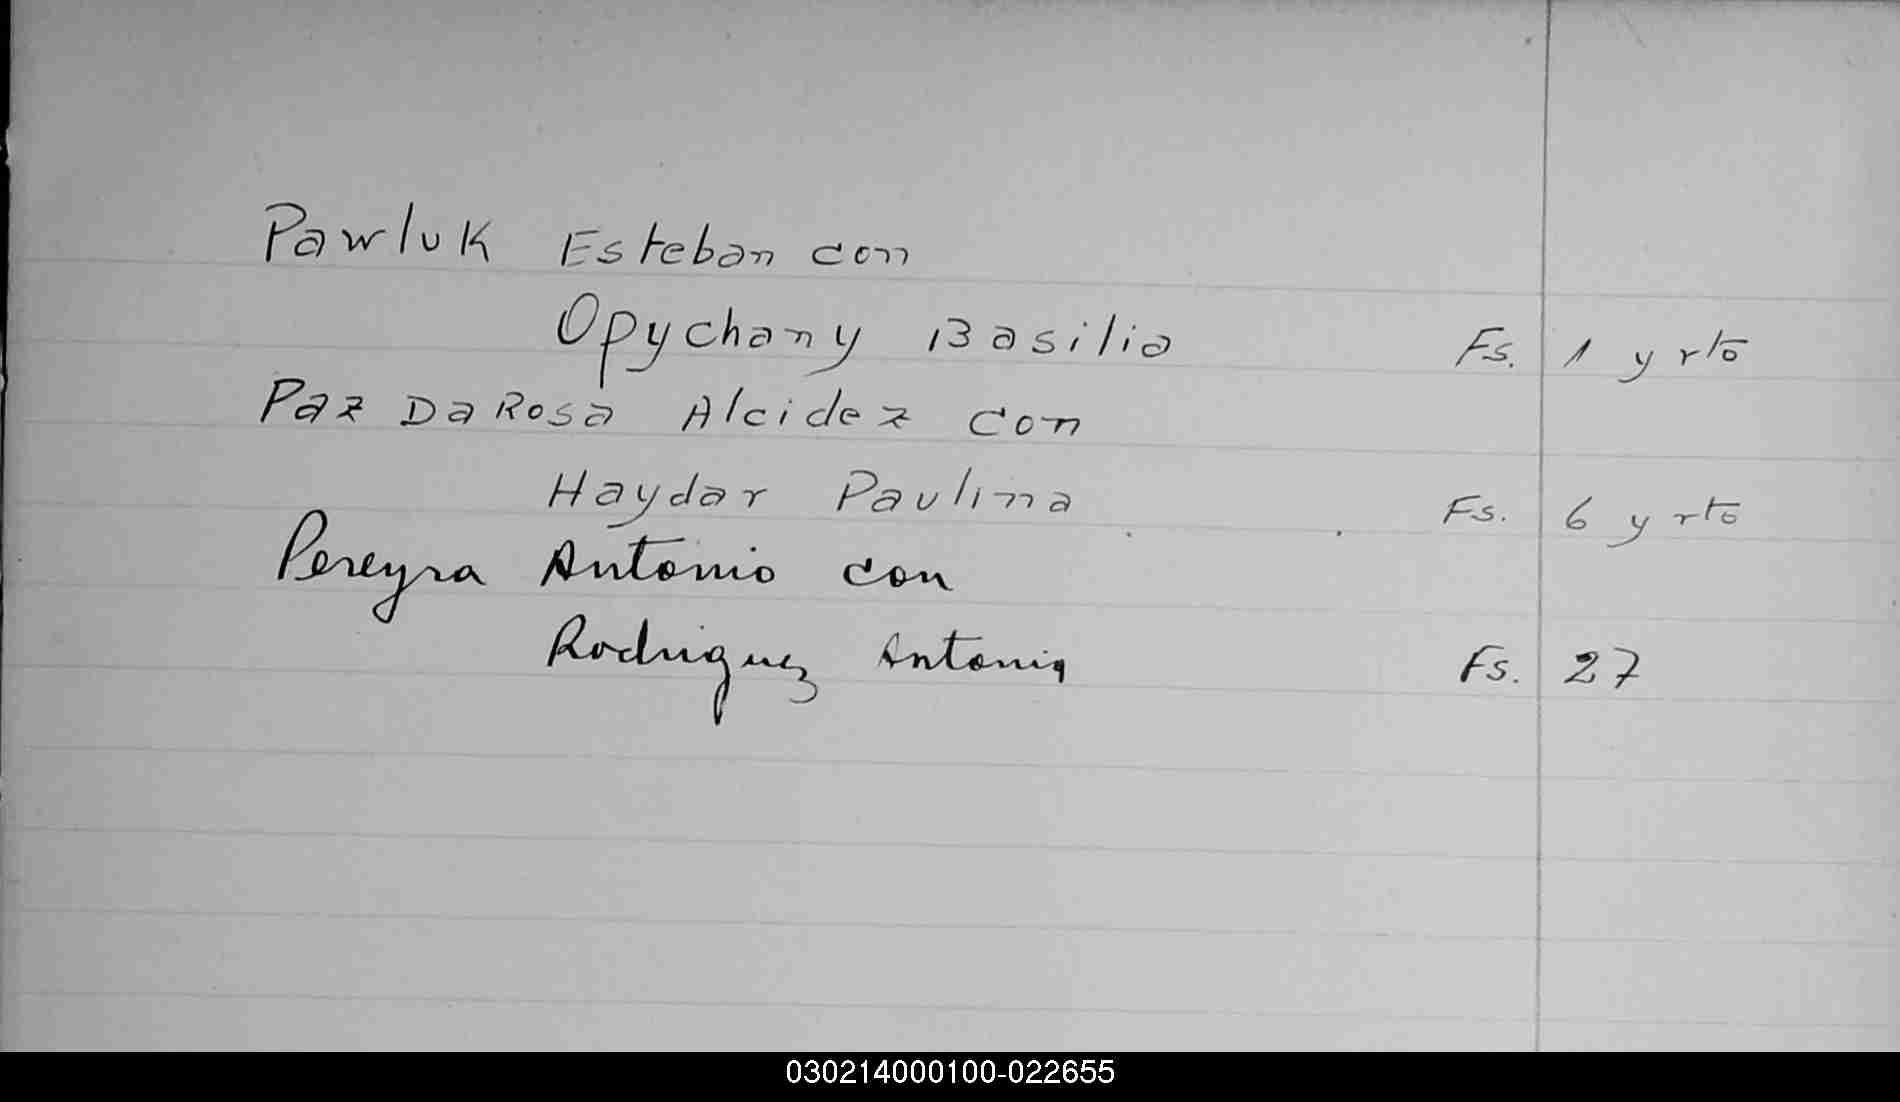 Pawluk Esteban con
Opychany Basilia Fs. 1 y rto
Paz Da Rosa Alcidez con
Haydar Paulina Fs. 6 y rto
Pereyra Antonio con
Rodriguez Antonia Fs. 27
030214000100-022655